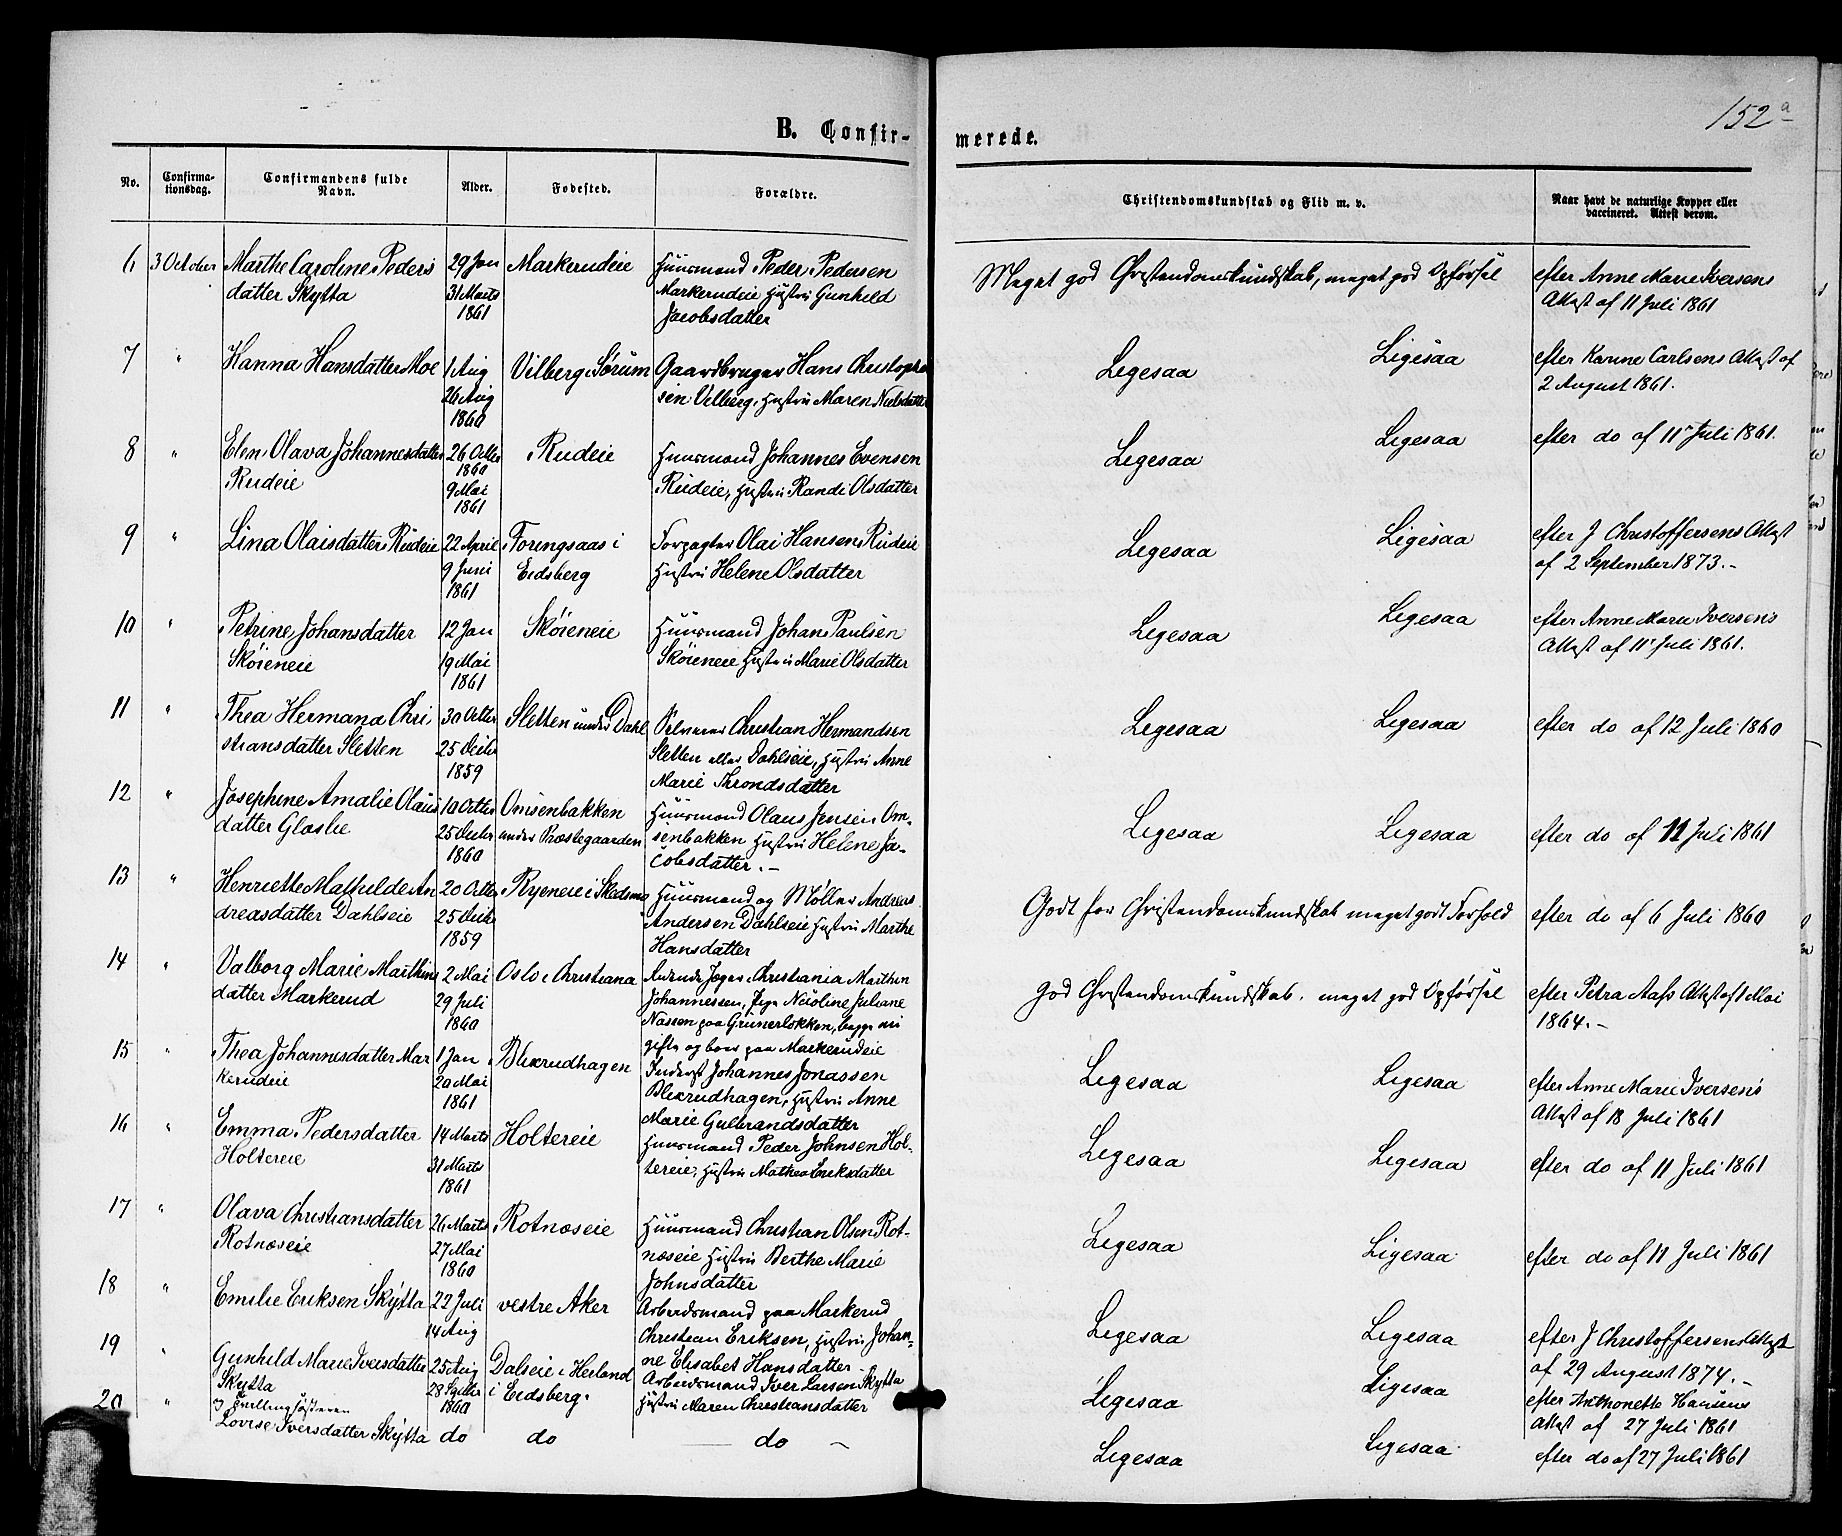 152 a
B. Confir-
merede.
No.
Confirma-
tionsdag.
Confirmandens fulde
Navn.
Alder.
Fødested.
Forældre.
Christendomskundskab og Flid m. v.
Naar havt de naturlige Kopper eller
vaccineret. Attest derom.
6 3 October Marthe Caroline Peders 29 Jan Markerudeie Huusmand Peder Pedersen Meget god Christendomskundskab, meget god Opførsel efter Anne Marie Iversens
datter Skytta 31 Marts Markerudeie Hustru Gunhild Attest af 11 Juli 1861
1861 Jacobsdatter
7 " Hanna Hansdatter Moe 1 Aug Vilberg i Sørum Gaardbruger Hans Christophe Ligesaa Ligesaa efter Karine Carlsens Attest af
26 Aug sen Vilberg, Hustru Maren Nielsdatter 2 August 1861.
1860
8 " Elen Olava Johannesdatter 26 Octbr Rudeie Huusmand Johannes Evensen Ligesaa Ligesaa efter do af 11 Juli 1861.
1860
Rudeie 9 Mai Rudeie, Hustru Randi Olsdatter
1861
9 " Lina Olaisdatter Rudeie 22 April Foringsaas i Forpagter Olai Hansen Rudeie Ligesaa Ligesaa efter J Christoffersens Attest
9 Juni Eidsberg Hustru Helene Olsdatter af 2 September 1873.-
1861
10 " Petrine Johansdatter 12 Jan Skøieneie Huusmand Johan Paulsen Ligesaa Ligesaa efter Anne Marie Iversens
Skøieneie 19 Mai Skøieneie Hustru Marie Olsdatter Attest af 11 Juli 1861.
1861
11 " Thea Hermana Chri 30 Octbr Sletten under Dahl Christian Hermandsen Ligesaa Ligesaa efter do af 12 Juli 1860
stiansdatter Sletten 25 Decbr Sletten eller Dahlseie, Hustru Anne
1859 Marie Throndsdatter
12 " Josephine Amalie Olaus 10 Octbr Omsenbakken Huusmand Olaus Jensen Om- Ligesaa Ligesaa efter do af 11 Juli 1861
datter Glaslie 25 Decbr under Præstegaarden senbakken Hustru Helene Ja-
1860 cobsdatter.-
13 " Henriette Mathilde An 20 Octbr Ryeneie i Skedsmo Huusmand og Møller Andreas Godt for Christendomskundskab meget godt Forhold efter do af 6 Juli 1860
dreasdatter Dahlseie 25 Decbr Andersen Dahlseie Hustru Marthe
1859 Hansdatter
14 " Valborg Marie Marthins 2 Mai Oslo i Christiana Jæger i Christiania Marthin God Christendomskundskab, meget god Opførsel efter Petra Aass Attest af 1 Mai
datter Markerud 29 Juli Johannessen, Pige Nicoline Juliane 1864.-
1860 Nassen paa Grünerløkken, begge ui
gifte og boer paa Markerudeie
15 " Thea Johannesdatter Mar 1 Jan Blixrudhagen Inderst Johannes Jonassen Ligesaa Ligesaa efter Anne Marie Iversens
kerudeie 20 Mai Blixrudhagen, Hustru Anne Attest af 18 Juli 1861
1861 Marie Gulbrandsdatter
16 " Emma Pedersdatter 14 Marts Holtereie Huusmand Peder Johnsen Hol- Ligesaa Ligesaa efter do af 11 Juli 1861
Holtereie 31 Marts tereie, Hustru Mathea Eriksdatter
1861
17 " Olava Christiansdatter 26 Marts Rotnæseie Huusmand Christian Olsen Rot- Ligesaa Ligesaa efter do af 11 Juli 1861
Rotnæseie 27 Mai næseie Hustru Berthe Marie
1860 Johnsdatter
18 " Emilie Eriksen Skytta 22 Juli vestre Aker Arbeidsmand paa Markerud Ligesaa Ligesaa efter J Christoffersens Attest
14 Aug Christian Eriksen, Hustru Johan- af 29 August 1874.-
ne Elisabet Hansdatter
19 " Gunhild Marie Iversdatter 25 Aug Dalseie i Herland Arbeidsmand Iver Larsen Skytta Ligesaa Ligesaa efter Anthonette Hansens
Skytta 28 Septbr i Eidsberg. Hustru Maren Christiansdatter Attest af 27 Juli 1861
1860
20 " Tvillingsøsteren
Lovise Iversdatter Skytta do do do Ligesaa Ligesaa efter do af 27 Juli 1861